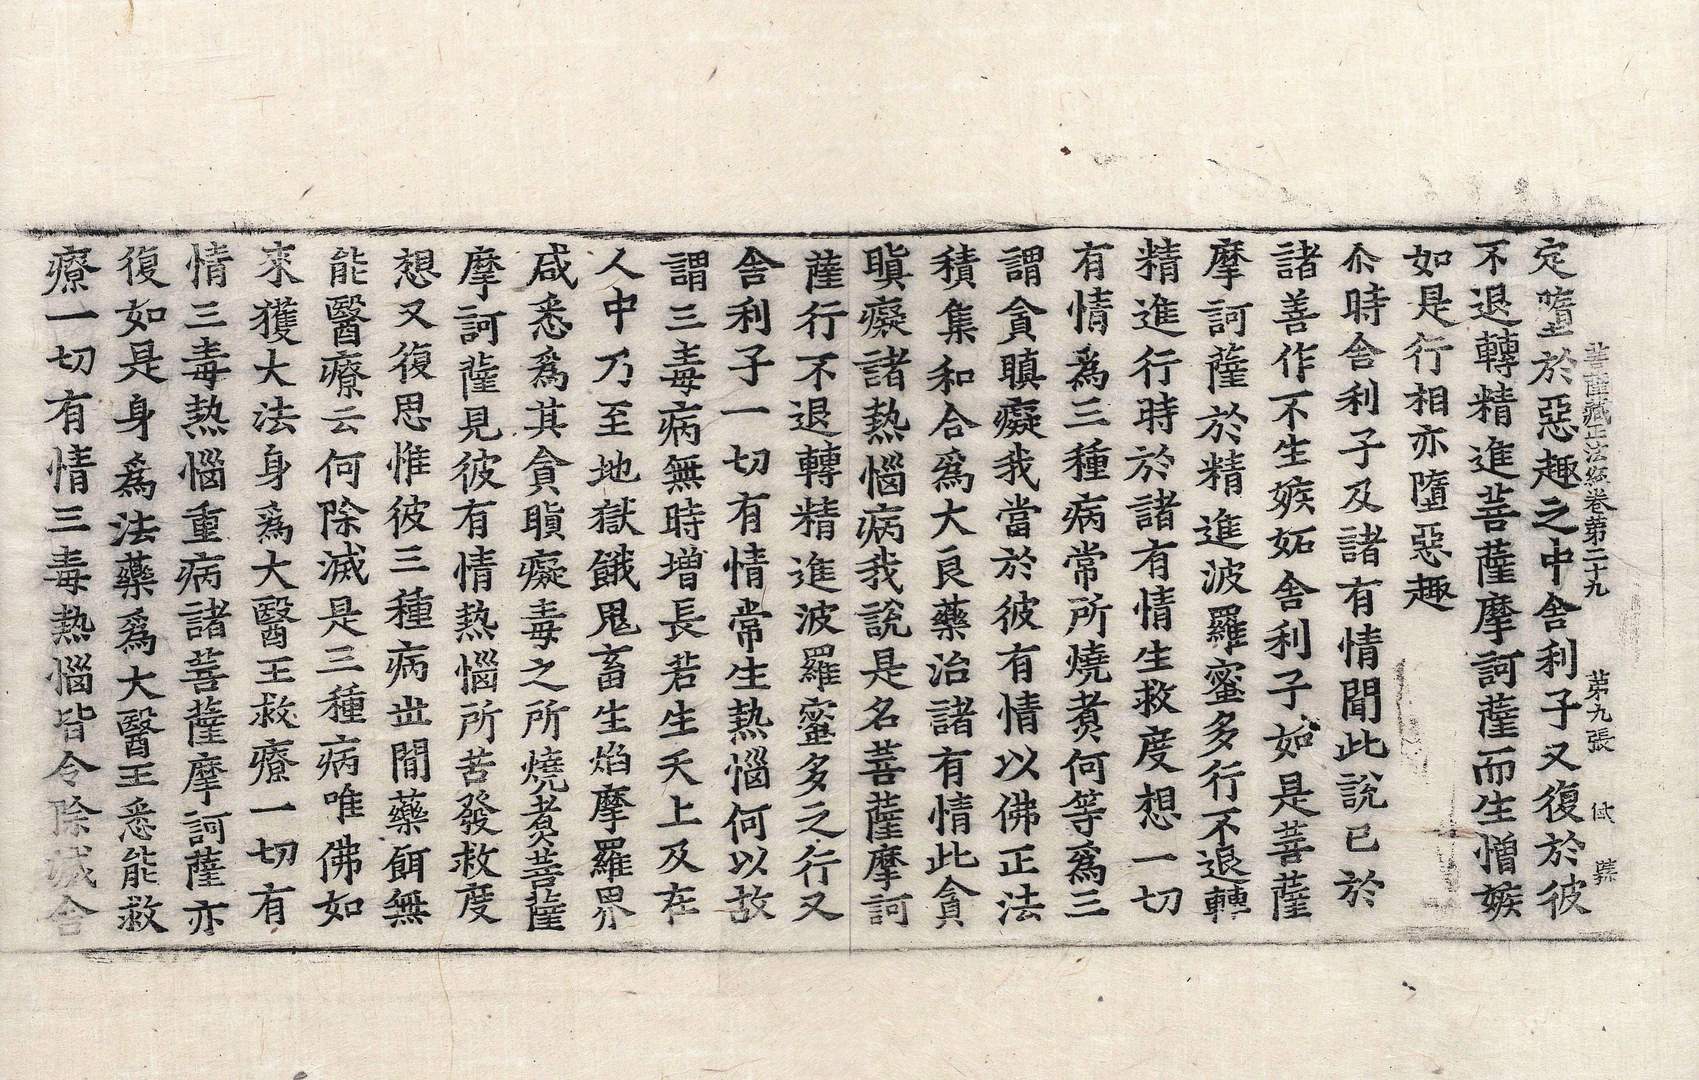 菩薩藏正法經卷第二十九　第九張　㑹號
定墮於惡趣之中舍利子又復於彼
不退轉精進菩薩摩訶薩而生憎嫉
如是行相亦墮惡趣
尒時舍利子及諸有情聞此說已於
諸善作不生嫉妬舍利子如是菩薩
摩訶薩於精進波羅蜜多行不退轉
精進行時於諸有情生救度想一切
有情爲三種病常所燒煑何等爲三
謂貪瞋癡我當於彼有情以佛正法
積集和合爲大良藥治諸有情此貪
瞋癡諸熱惱病我說是名菩薩摩訶
薩行不退轉精進波羅蜜多之行又
舍利子一切有情常生熱惱何以故
謂三毒病無時增長若生天上及在
人中乃至地獄餓鬼畜生焰摩羅界
咸悉爲其貪瞋癡毒之所燒煑菩薩
摩訶薩見彼有情熱惱所苦發救度
想又復思惟彼三種病世間藥餌無
能醫療云何除滅是三種病唯佛如
來獲大法身爲大醫王救療一切有
情三毒熱惱重病諸菩薩摩訶薩亦
復如是身爲法藥爲大醫王悉能救
療一切有情三毒熱惱皆令除滅舍